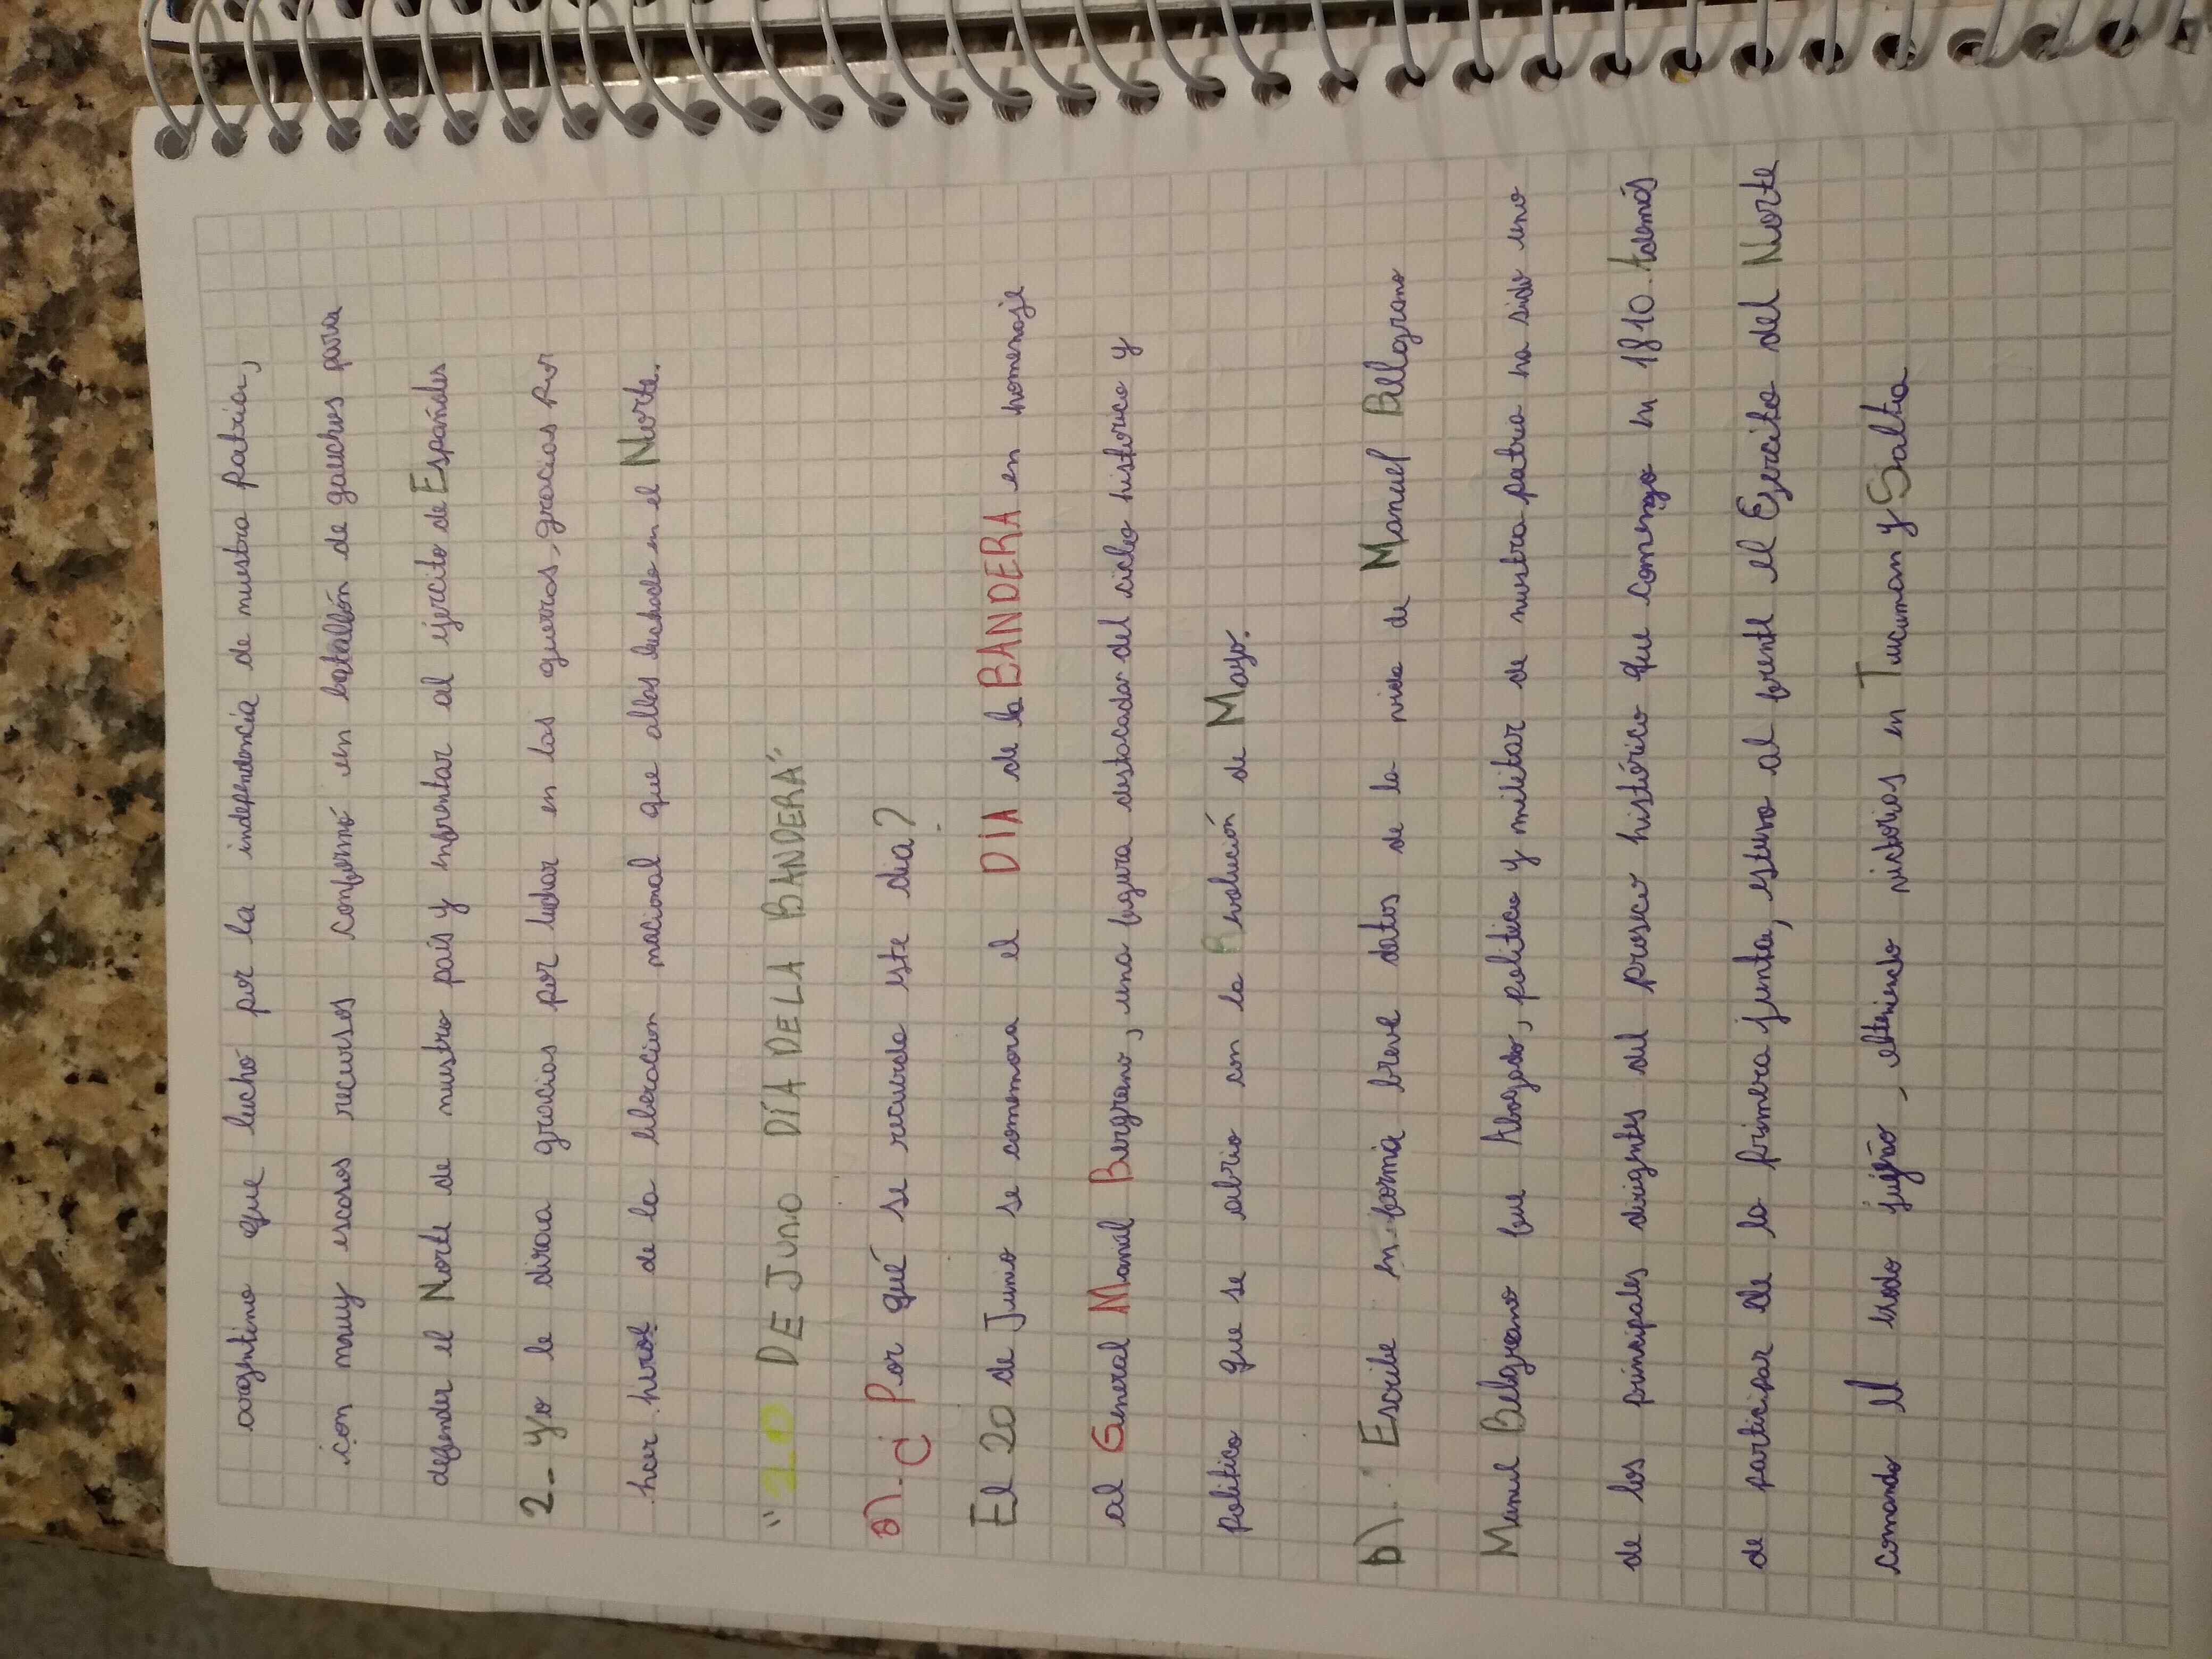 argentino que lucho por la independencia de nuestra patria,
con muy escasos recursos conformó en batallón de gauchos para
defender el Norte de nuestro país y enfrentar al ejercito de Españoles
2-- Yo le diraa gracias por luchar en las guerras, gracias por
hcer heroe de la liberacion nacional que allas luchado en el Norte.
"20 DE Junio DÍA DE LA BANDERA"
a)- ¿ Por qué se recuerda este dia?
El 20 de Junio se commemora el DIA de la BANDERA en homenaje
al General Manál Bergrano, una figura destacadar del ciclo historico y
politico que se abrio con la Revolución de Mayo.
b)- Escribe en forma breve datos de la vida de Manuel Bellgrano
Manuel Belbgrano fue Abogado, politico y militar de nuestra patria ha sido uno
de los principales dirigentes del prosceo histórico que comenzo en 1810. Ademós
de participar de la primera junta, estuvo al frente el Ejercito del Norte
comando el exodo jujeño, obteniendo victorias en Tucuman y Salta